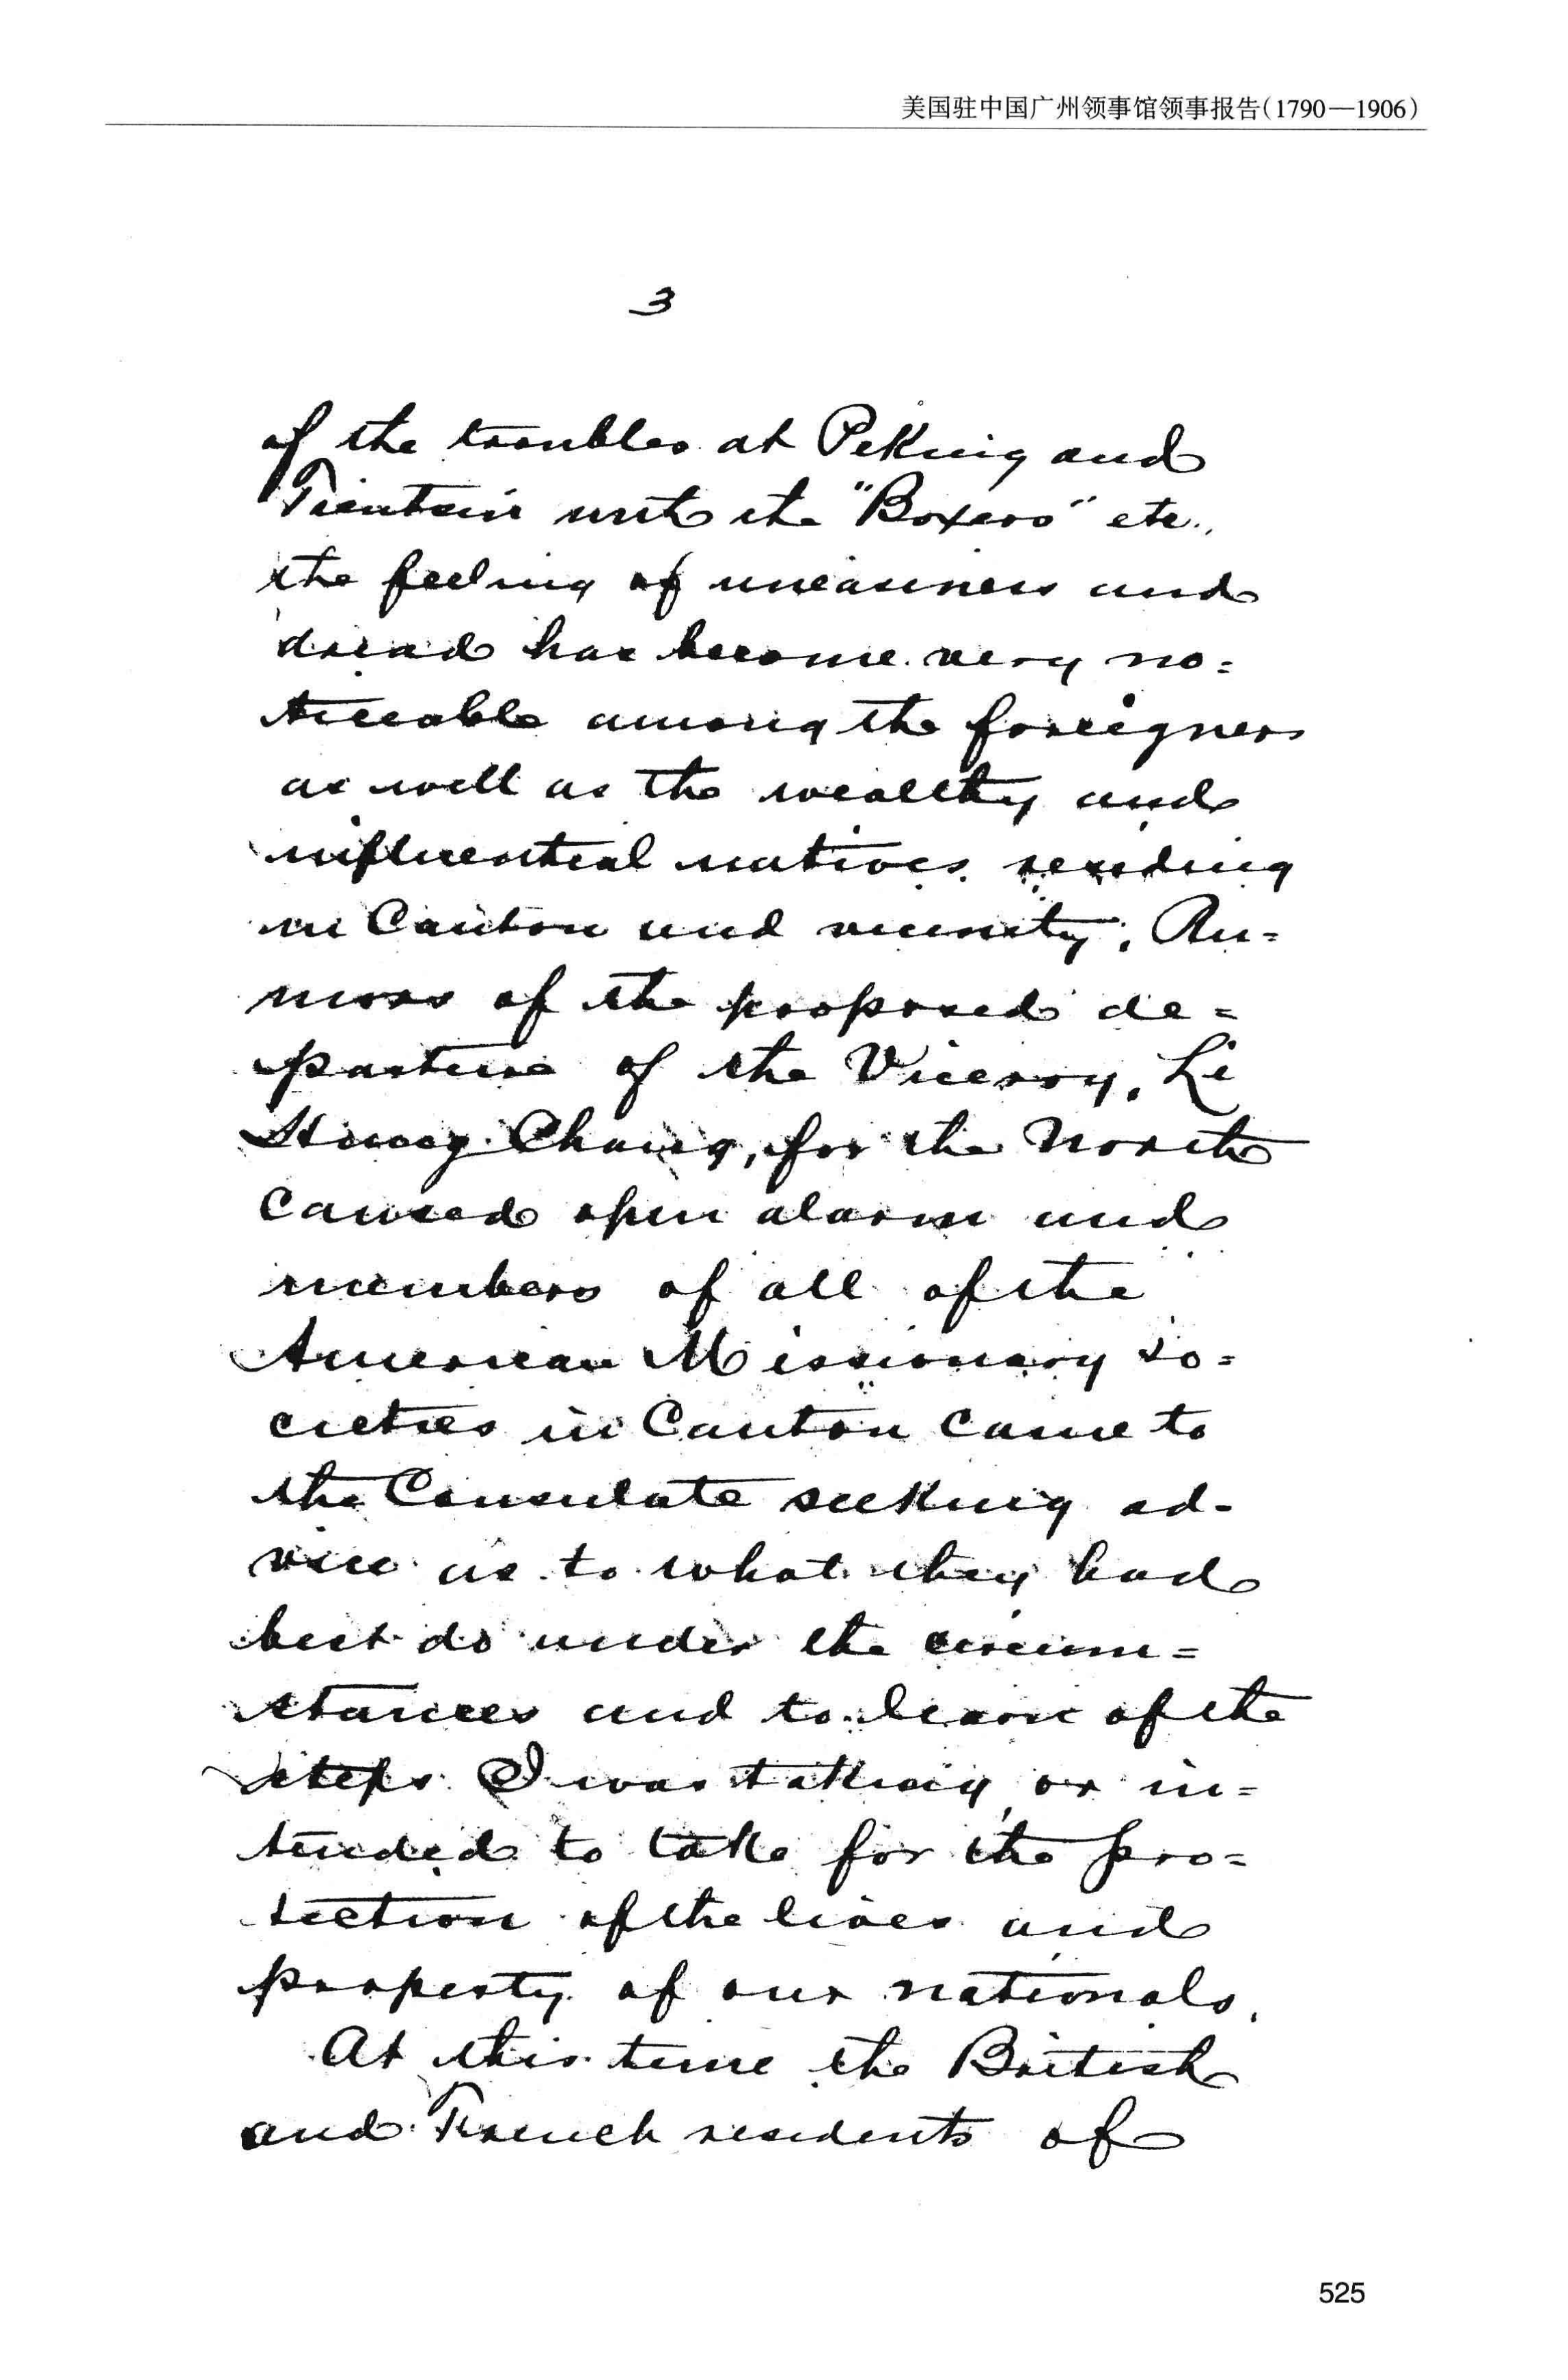 美国驻中国广州领事馆领事报告(1790—1906)
3
of the troubles at Peking and
Tientsin with the "Boxers" etc.,
the feeling of uneasiness and
dread has become very no=
ticeable among the foreigners
as well as the wealthy and
influential natives residing
in Canton and vicinity. Ru=
mors of the proposed de=
parture of the Viceroy, Li
Hung Chang, for the North
caused open alarm and
members of all of the
American Missionary so=
cieties in Canton came to
the Consulate seeking ad-
vice as to what they had
best do under the circum=
stances and to learn of the
steps I was taking or in=
tended to take for the pro=
tection of the lives and
property of our nationals.
At this time the British
and French residents of
525